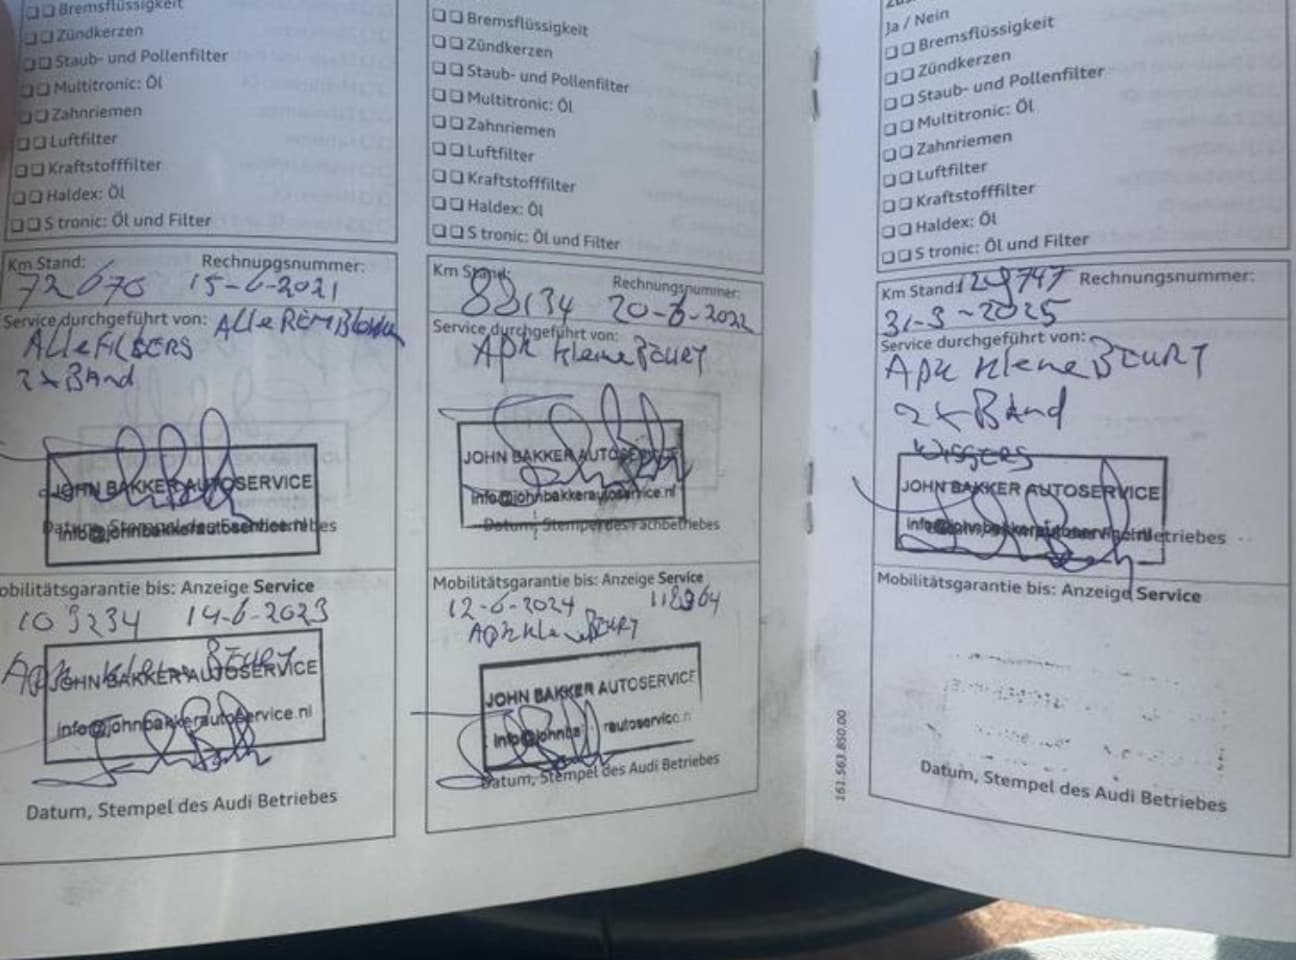 Bremsflüssigkeit
Zündkerzen
Staub- und Pollenfilter
Multitronic: Öl
Zahnriemen
Luftfilter
Kraftstofffilter
Haldex: Öl
S tronic: Öl und Filter
Km Stand: Rechnungsnummer:
72670 15-6-2021
Service durchgeführt von: Alle Remblokken
Alle Filters
2x Band
JOHN BAKKER AUTOSERVICE
info@johnbakkerautoservice.nl
Mobilitätsgarantie bis: Anzeige Service
103234 14-6-2023
APK kleine Beurt
JOHN BAKKER AUTOSERVICE
info@johnbakkerautoservice.nl
Datum, Stempel des Audi Betriebes
Bremsflüssigkeit
Zündkerzen
Staub- und Pollenfilter
Multitronic: Öl
Zahnriemen
Luftfilter
Kraftstofffilter
Haldex: Öl
S tronic: Öl und Filter
Km Stand: Rechnungsnummer:
88134 20-6-2022
Service durchgeführt von:
APK kleine Beurt
JOHN BAKKER AUTOSERVICE
info@johnbakkerautoservice.nl
Datum, Stempel des Fachbetriebes
Mobilitätsgarantie bis: Anzeige Service
12-6-2024 118964
APK kleine Beurt
JOHN BAKKER AUTOSERVICE
Datum, Stempel des Audi Betriebes
Ja / Nein
Bremsflüssigkeit
Zündkerzen
Staub- und Pollenfilter
Multitronic: Öl
Zahnriemen
Luftfilter
Kraftstofffilter
Haldex: Öl
S tronic: Öl und Filter
Km Stand: 129747 Rechnungsnummer:
31-3-2025
Service durchgeführt von:
APK kleine Beurt
2x Band
Wissers
JOHN BAKKER AUTOSERVICE
info@johnbakkerautoservice.nl
Betriebes
Mobilitätsgarantie bis: Anzeige Service
Datum, Stempel des Audi Betriebes
161.563.850.00